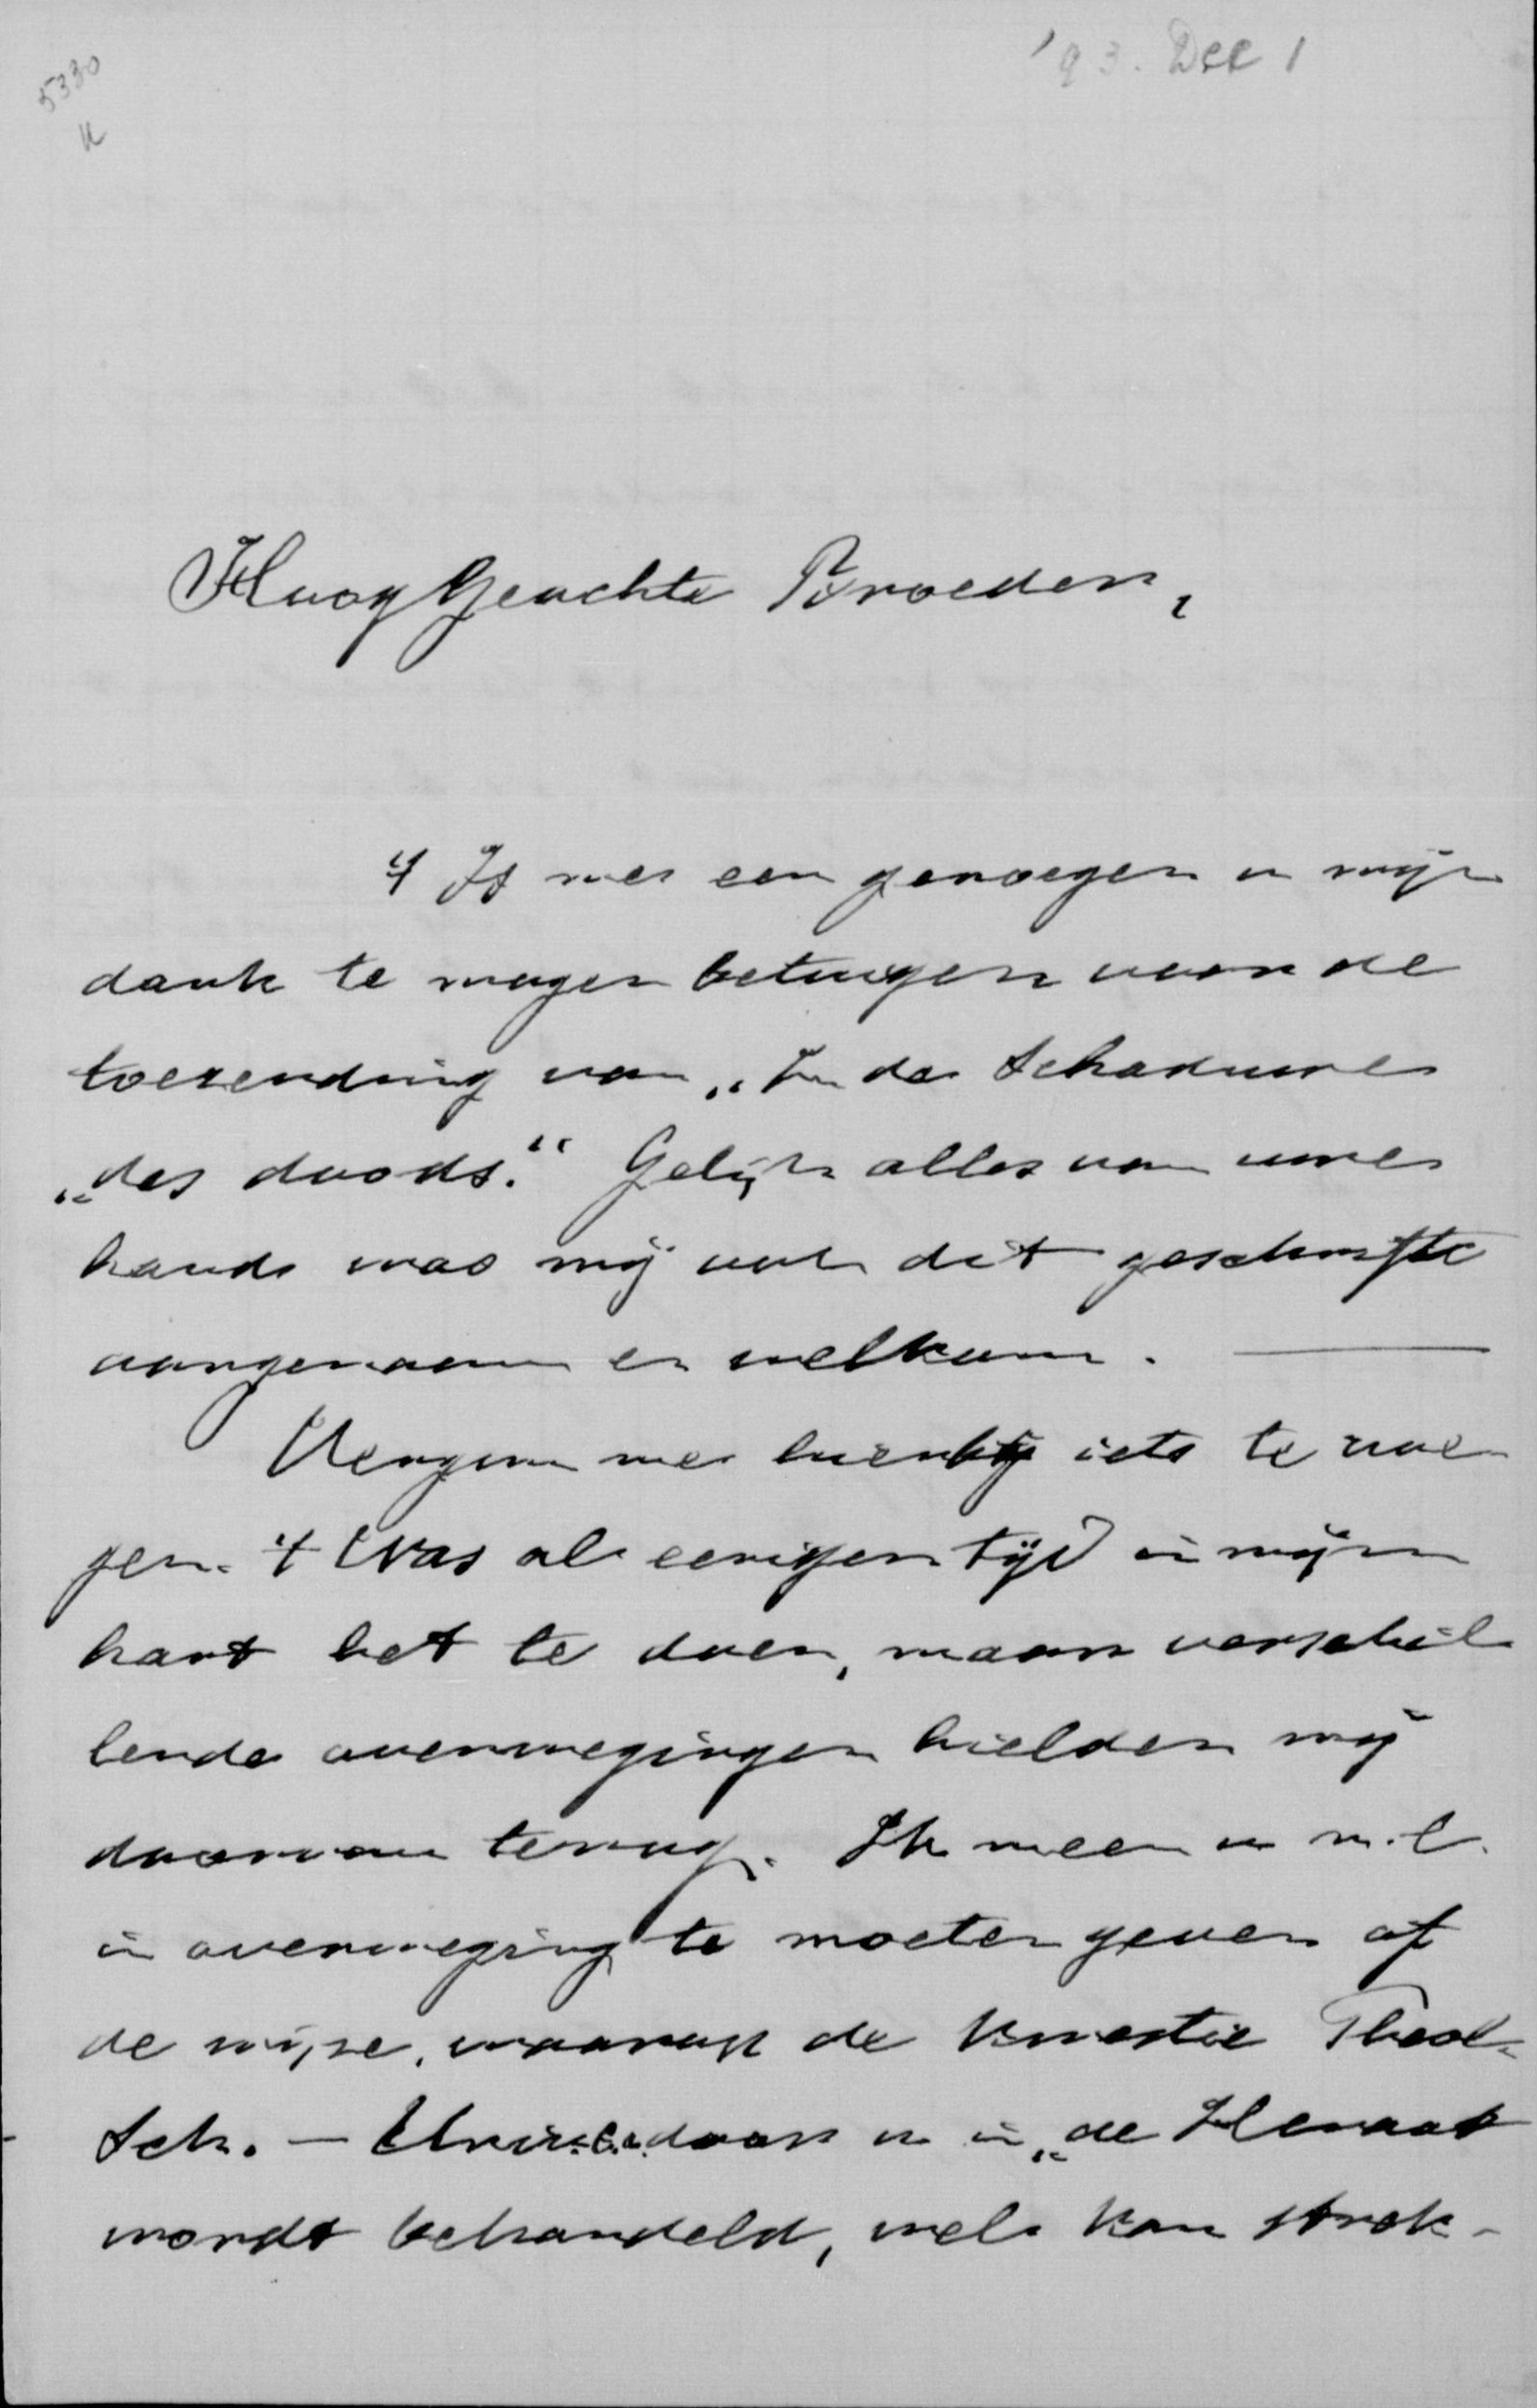 '93. Dec 1
5330
K
Hoog geachte Broeder,
't Is mer een genoegen u mijn
dank te mogen betuigen voor de
toezending van „In de Schaduwe
„des doods.“ Gelijk alles van uwe
hand was mij ook dit geschrifte
aangenaam en welkom. —
Vergun me hierbij iets te voe-
gen. 't Was al eenigen tijd in mijn
hart het te doen, maar verschil-
lende overwegingen hielden mij
daarvan terug. Ik meen u n.l.
in overweging te moeten geven of
de wijze, waarop de kwestie Theol.
Sch. — Univ. door u in „de Heraut
wordt behandeld, wel kan strek-